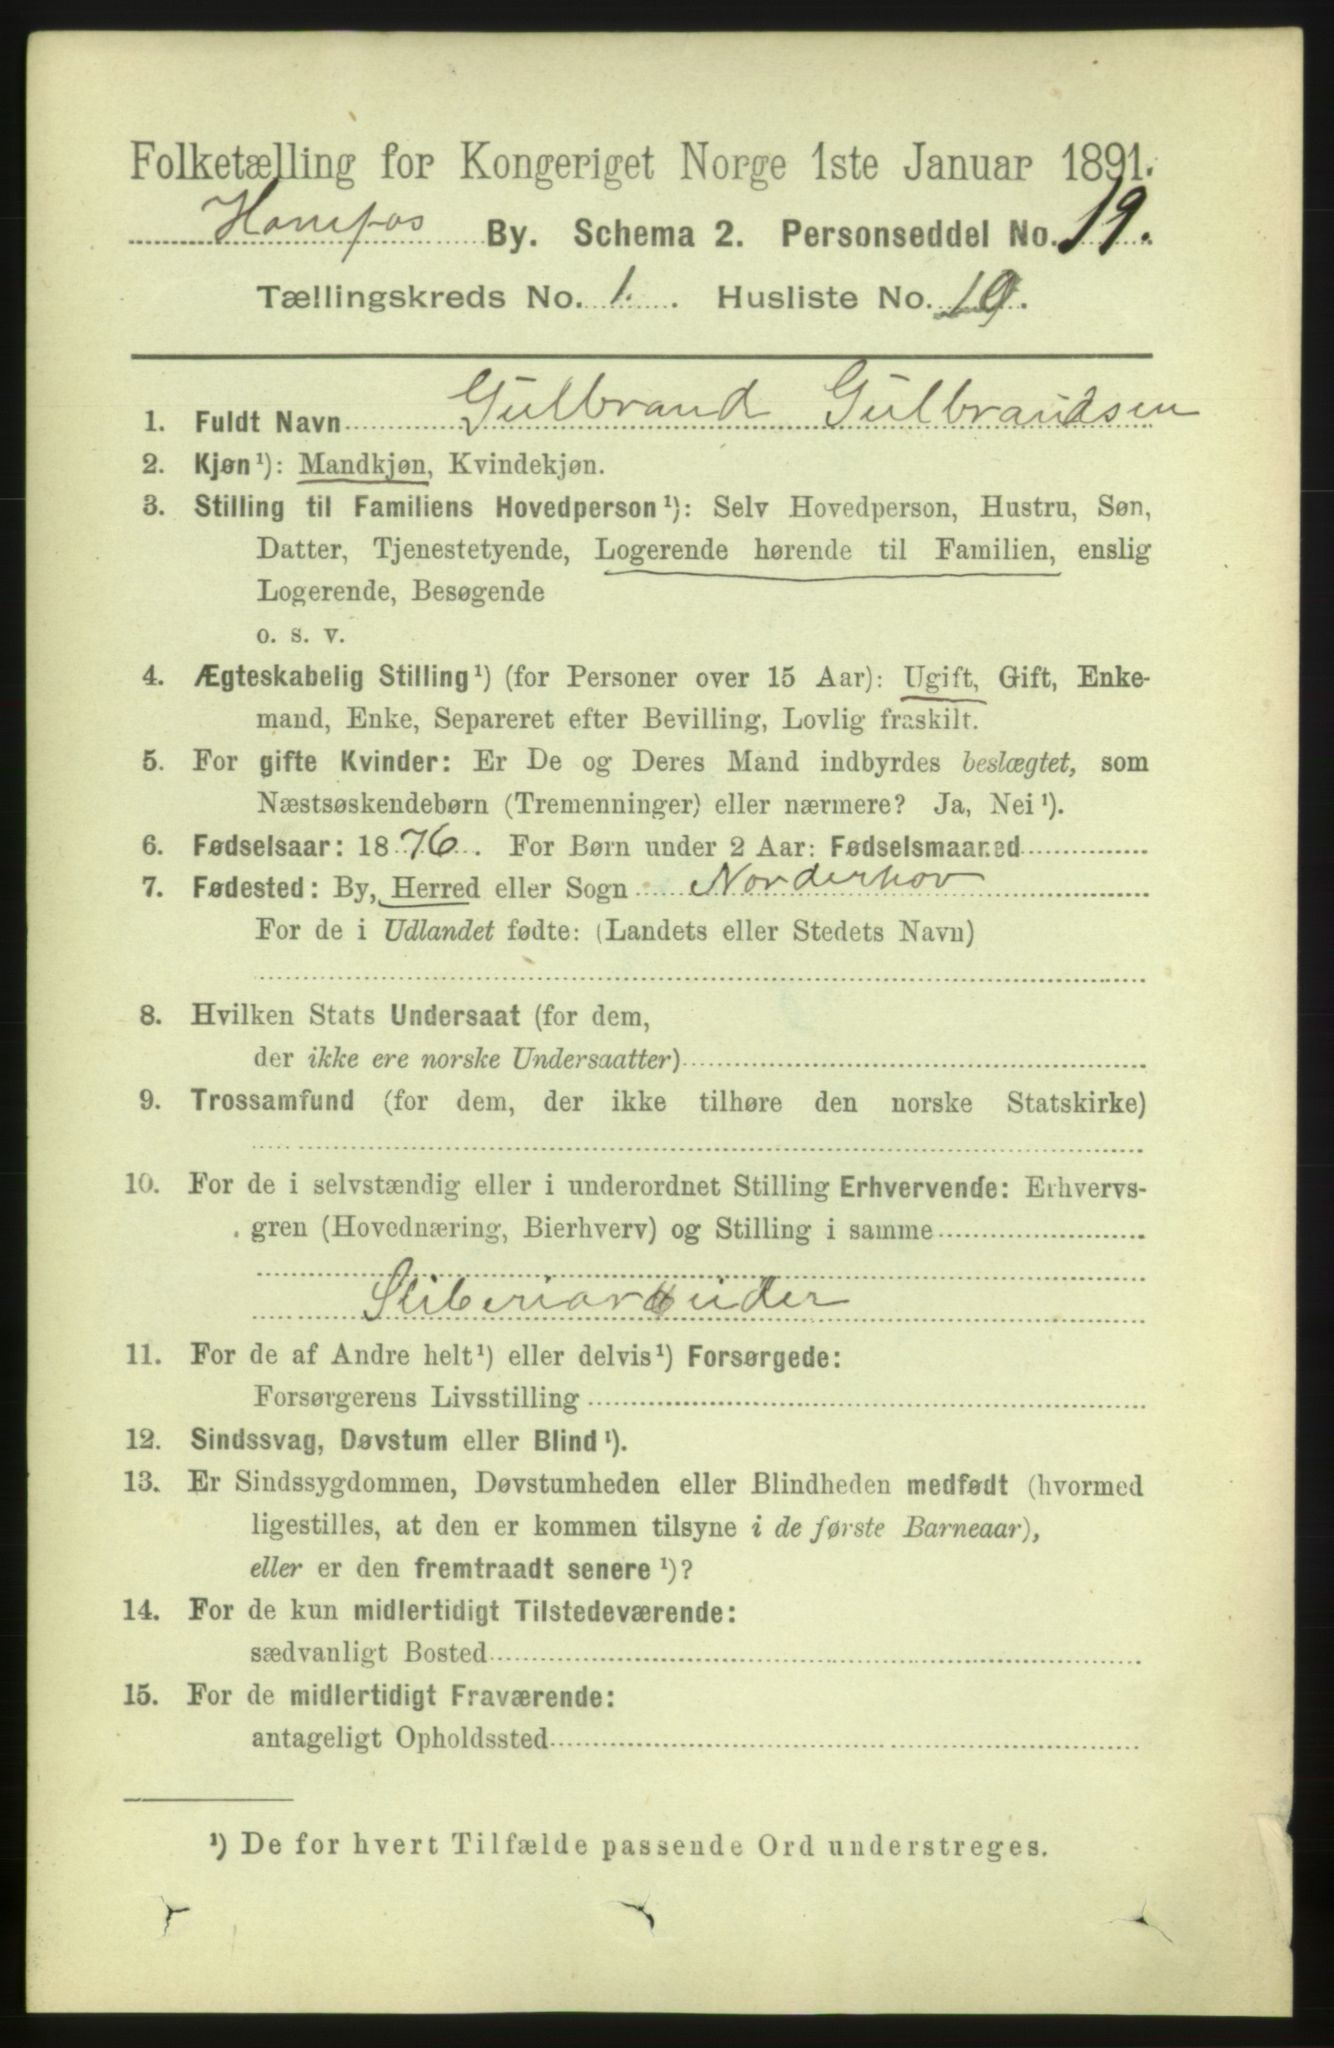 Folketælling for Kongeriget Norge 1ste Januar 1891.
Hønefos By. Schema 2. Personseddel No. 19.
Tællingskreds No. 1. Husliste No. 10.
1. Fuldt Navn Gulbrand Gulbrandsen
2. Kjøn¹): Mandkjøn, Kvindekjøn.
3. Stilling til Familiens Hovedperson¹): Selv Hovedperson, Hustru, Søn,
Datter, Tjenestetyende, Logerende hørende til Familien, enslig
Logerende, Besøgende
o. s. v.
4. Ægteskabelig Stilling¹) (for Personer over 15 Aar): Ugift, Gift, Enke-
mand, Enke, Separeret efter Bevilling, Lovlig fraskilt.
5. For gifte Kvinder: Er De og Deres Mand indbyrdes beslægtet, som
Næstsøskendebørn (Tremenninger) eller nærmere? Ja, Nei¹).
6. Fødselsaar: 1876. For Børn under 2 Aar: Fødselsmaaned
7. Fødested: By, Herred eller Sogn Norderhov
For de i Udlandet fødte: (Landets eller Stedets Navn)
8. Hvilken Stats Undersaat (for dem,
der ikke ere norske Undersaatter)
9. Trossamfund (for dem, der ikke tilhøre den norske Statskirke)
10. For de i selvstændig eller i underordnet Stilling Erhvervende: Erhvervs-
gren (Hovednæring, Bierhverv) og Stilling i samme
Sliberiarbeider
11. For de af Andre helt¹) eller delvis¹) Forsørgede:
Forsørgerens Livsstilling
12. Sindssvag, Døvstum eller Blind¹).
13. Er Sindssygdommen, Døvstumheden eller Blindheden medfødt (hvormed
ligestilles, at den er kommen tilsyne i de første Barneaar),
eller er den fremtraadt senere¹)?
14. For de kun midlertidigt Tilstedeværende:
sædvanligt Bosted
15. For de midlertidigt Fraværende:
antageligt Opholdssted
¹) De for hvert Tilfælde passende Ord understreges.